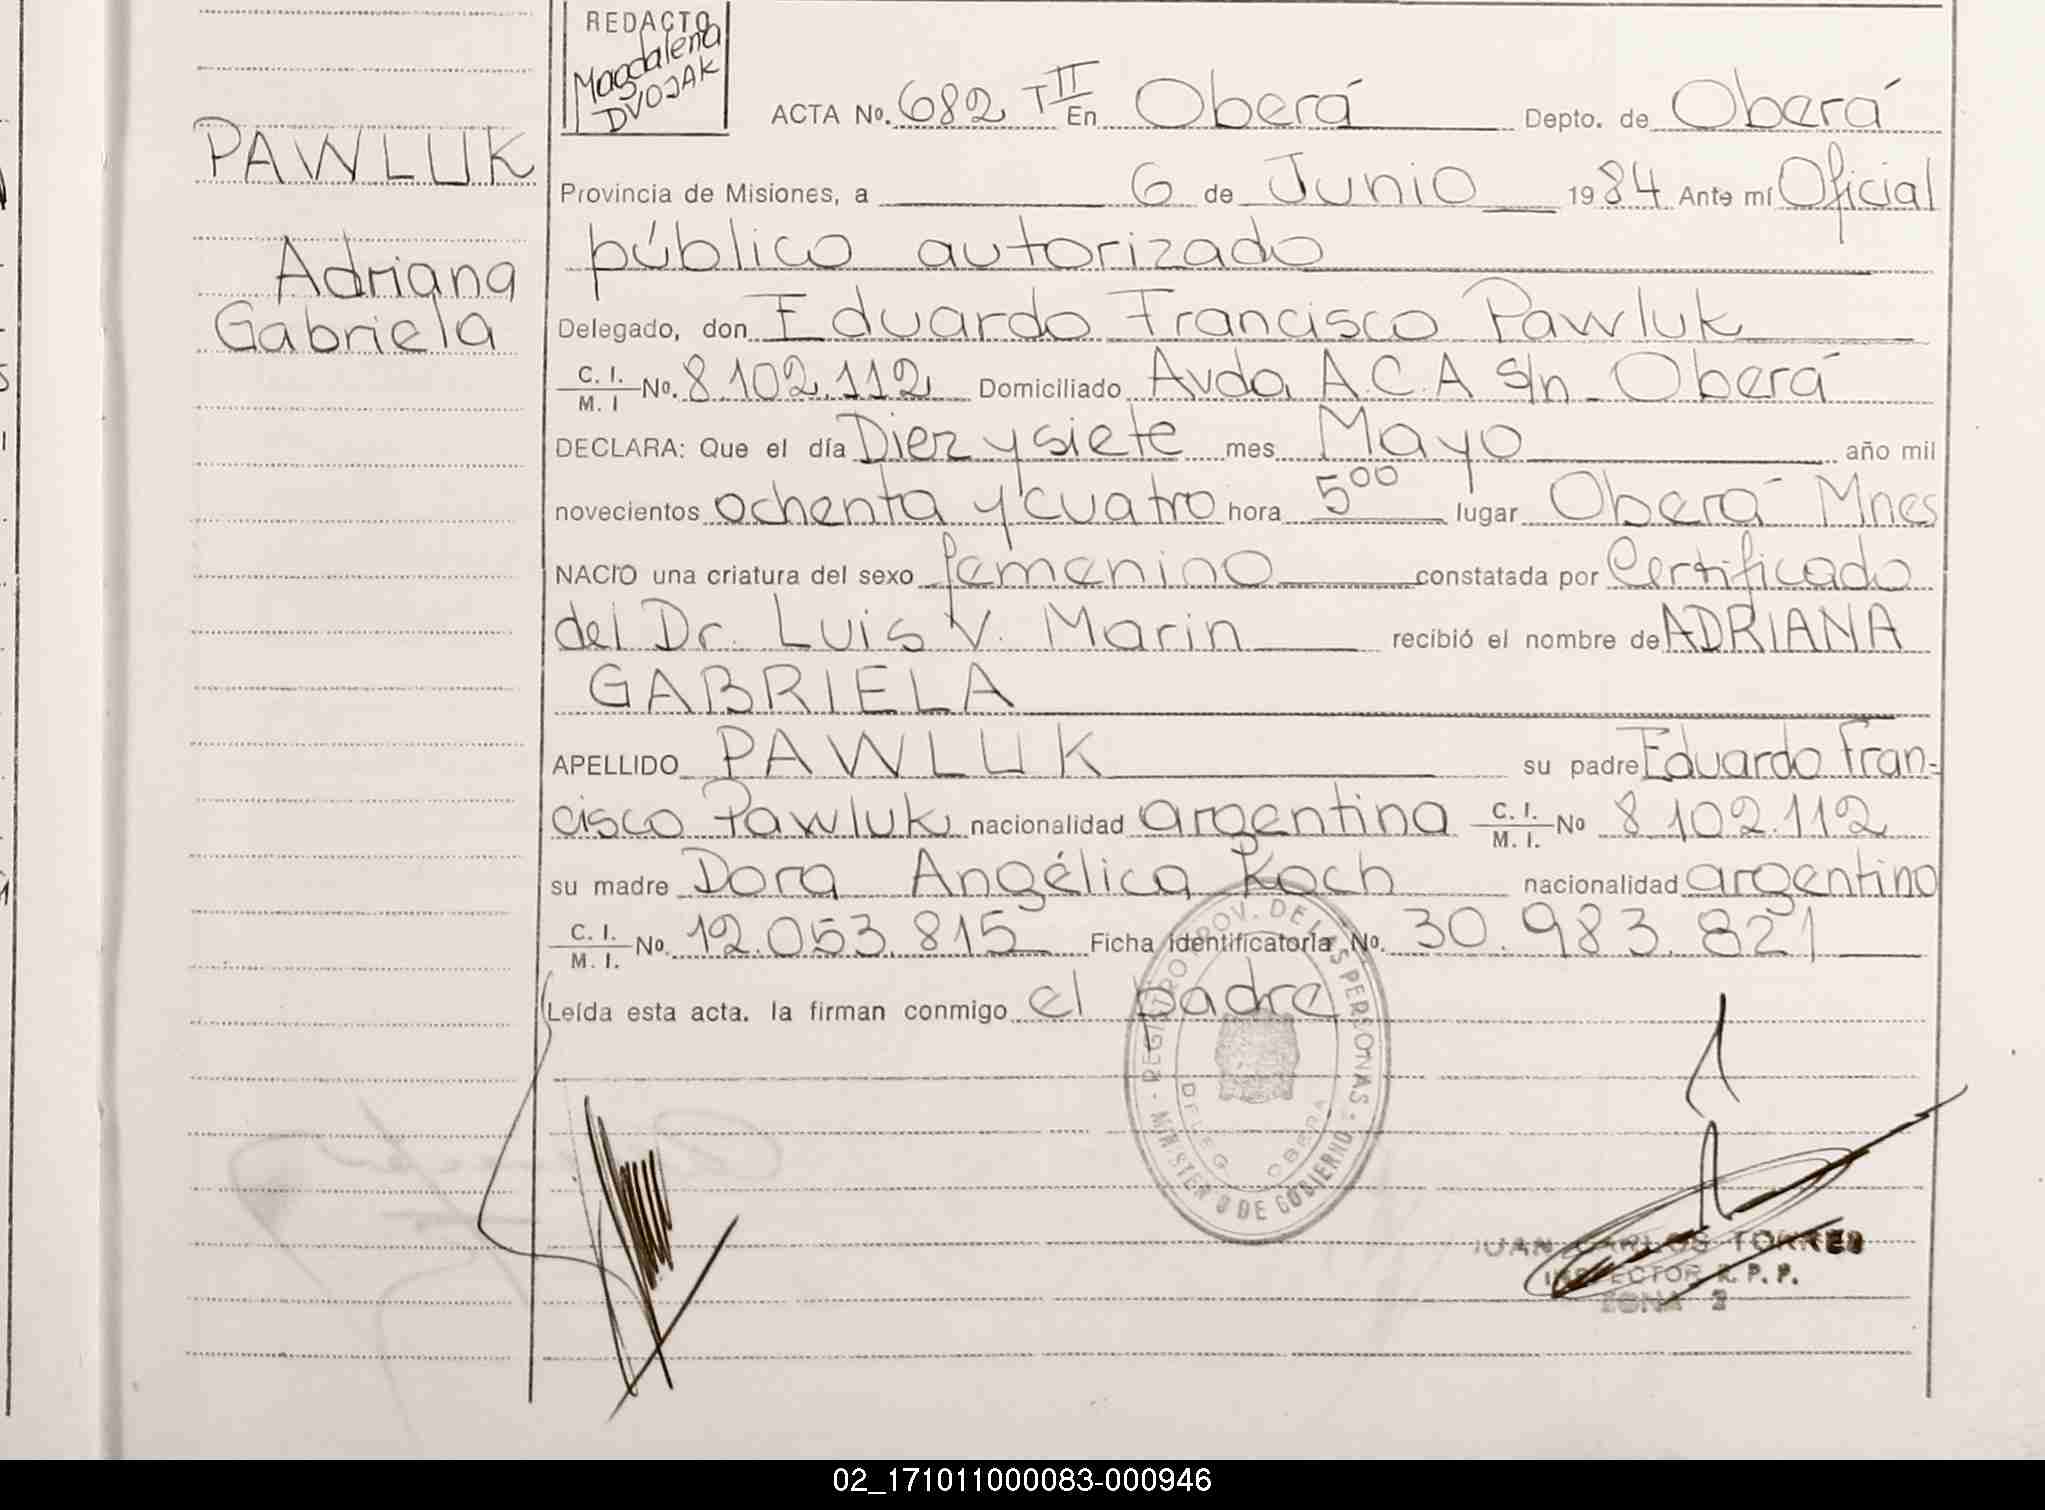 REDACTO
Magdalena
DVOJAK
PAWLUK
Adriana
Gabriela
ACTA No. 682 T II En Oberá Depto. de Oberá
Provincia de Misiones, a 6 de Junio 1984 Ante mí Oficial
público autorizado
Delegado, don Eduardo Francisco Pawluk
C. I. / M. I No. 8.102.112 Domiciliado Avda A.C.A s/n - Oberá
DECLARA: Que el día Diez y siete mes Mayo año mil
novecientos ochenta y cuatro hora 5⁰⁰ lugar Oberá Mnes
NACIO una criatura del sexo femenino constatada por Certificado
del Dr. Luis V. Marin recibió el nombre de ADRIANA
GABRIELA
APELLIDO PAWLUK su padre Eduardo Fran-
cisco Pawluk nacionalidad argentina C. I. / M. I. No 8.102.112
su madre Dora Angélica Koch nacionalidad argentina
C. I. / M. I. No. 12.053.815 Ficha identificatoria No. 30.983.821
Leída esta acta. la firman conmigo el padre
REGISTRO PROV. DE LAS PERSONAS - MINISTERIO DE GOBIERNO -
DELEG. OBERA
JUAN CARLOS TORRES
INSPECTOR R. P. P.
ZONA 2
02_171011000083-000946